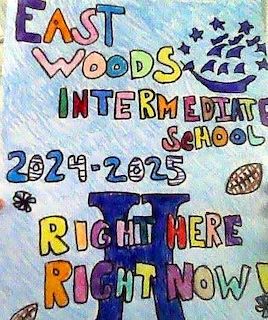 EAST
WOODS
INTERMEDIATE
SCHOOL
2024-2025
H
RIGHT HERE
RIGHT NOW!